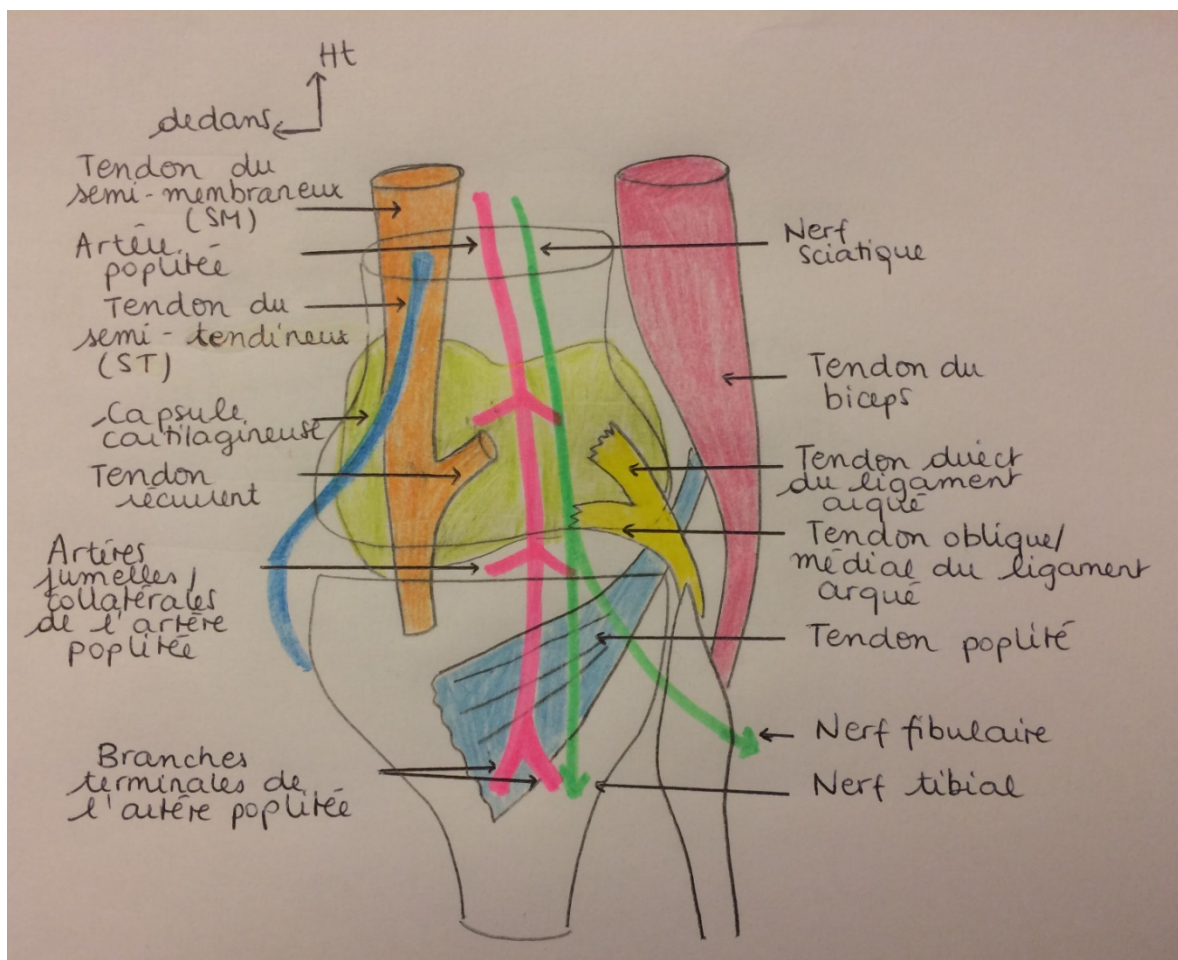 Ht
dedans
Tendon du
semi-membraneux
(SM)
Artère
poplitée
Tendon du
semi-tendineux
(ST)
Capsule
cartilagineuse
Tendon
récurrent
Artères
jumelles/
collatérales
de l'artère
poplitée
Branches
terminales de
l'artère poplitée
Nerf
sciatique
Tendon du
biceps
Tendon direct
du ligament
arqué
Tendon oblique/
médial du ligament
arqué
Tendon poplité
Nerf fibulaire
Nerf tibial